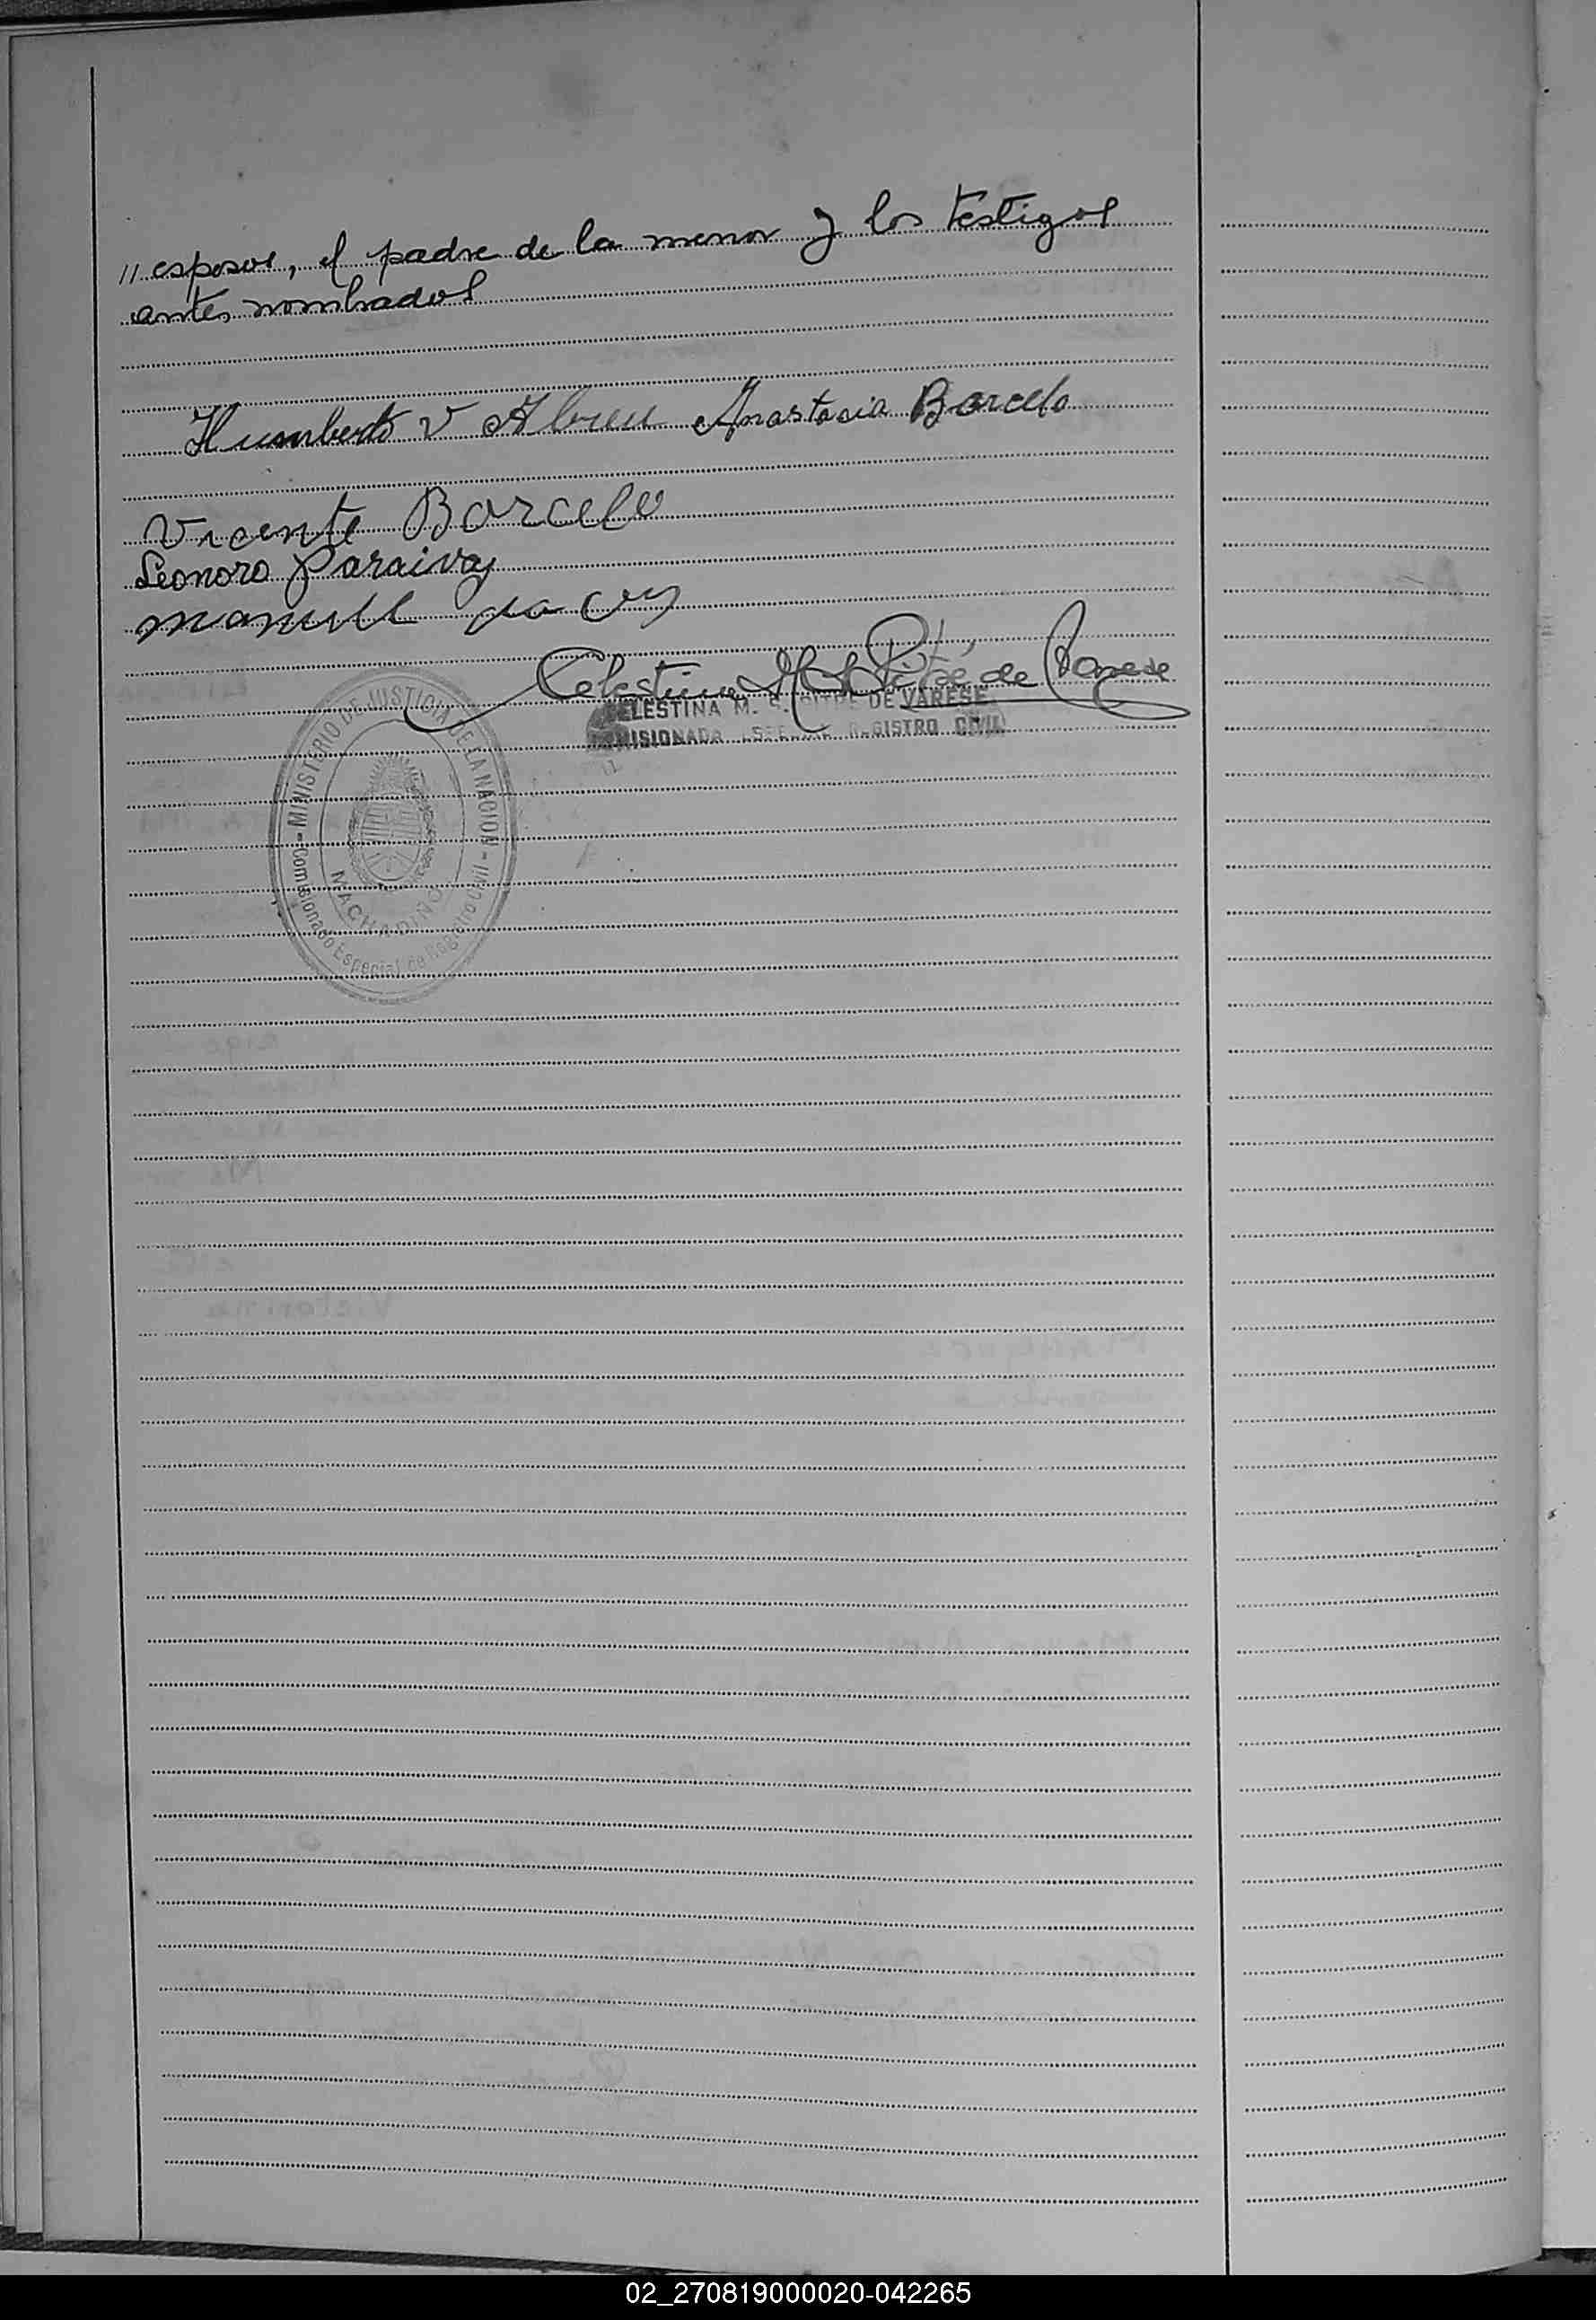 // esposos, el padre de la menor y los testigos
antes nombrados
Humberto V Abreu Anastacia Barcelo
Vicente Barcelo
Leonoro Paraiva
manuel
Celestina M S Pitré de Varese
CELESTINA M. S. PITRE DE VARESE
COMISIONADA ESPECIAL REGISTRO CIVIL
MINISTERIO DE JUSTICIA DE LA NACION
MACHADIÑO
Comisionado Especial de Registro Civil
02_270819000020-042265